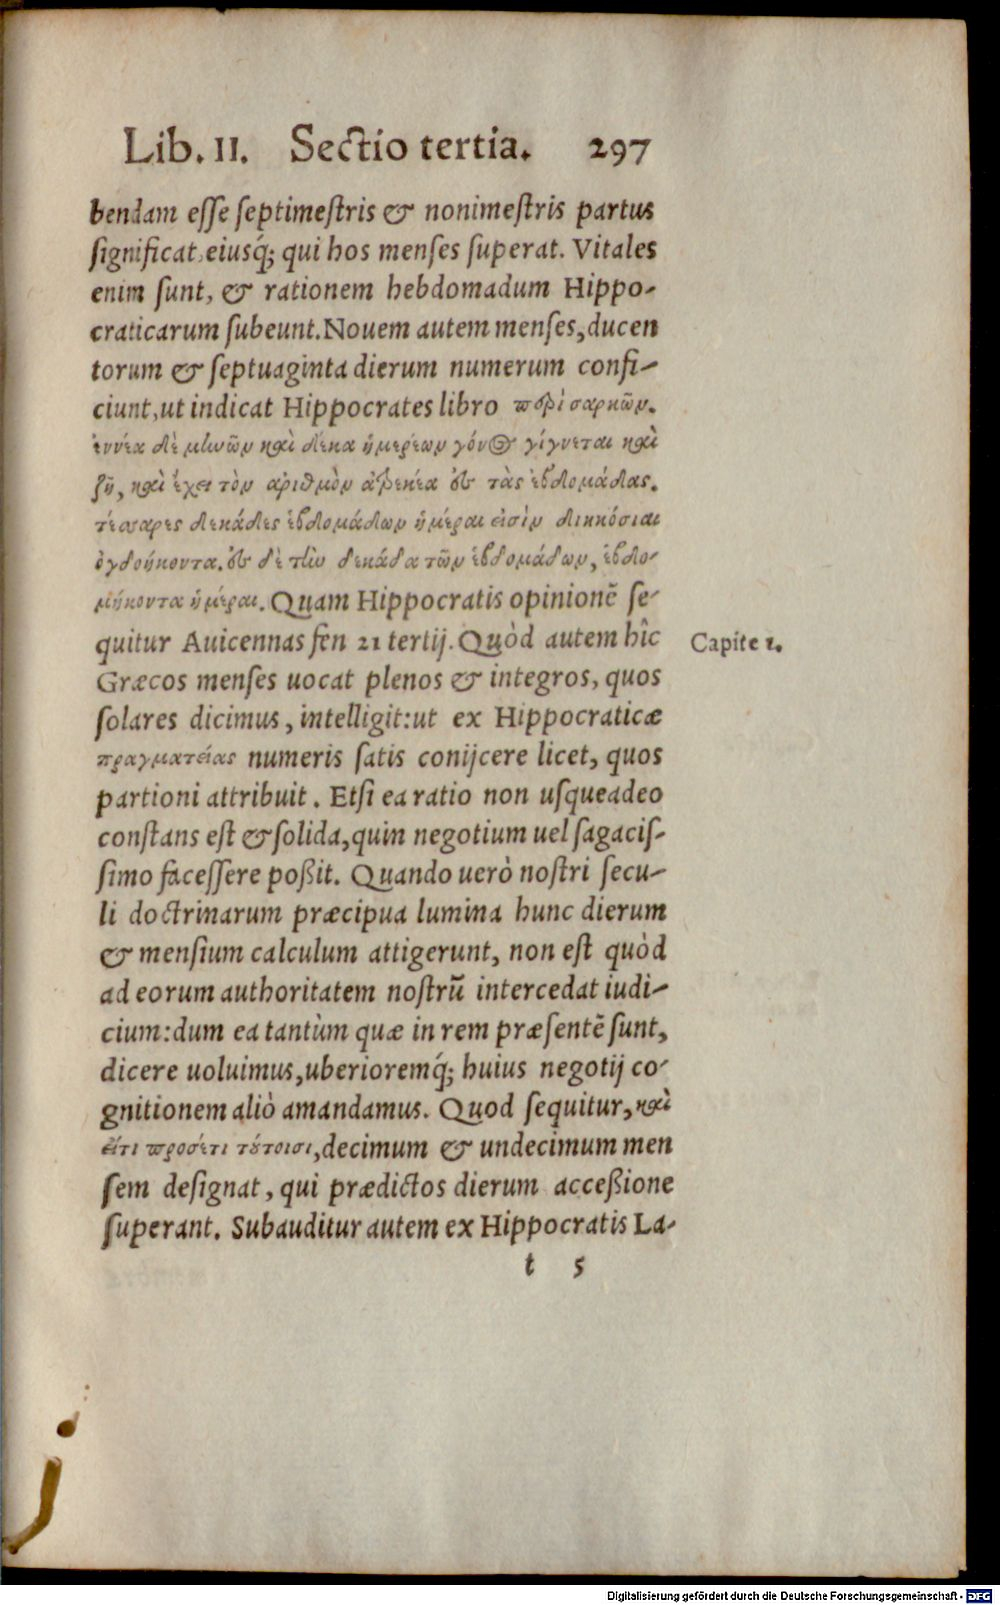 Lib. II. Sectio tertia. 297
bendam esse septimestris & nonimestris partus
significat, eiusq́; qui hos menses superat. Vitales
enim sunt, & rationem hebdomadum Hippo-
craticarum subeunt. Nouem autem menses, ducen
torum & septuaginta dierum numerum confi-
ciunt, ut indicat Hippocrates libro περὶ σαρκῶν.
ἐννέα δὲ μηνῶν καὶ δέκα ἡμερέων γόνος γίγνεται καὶ
ζῇ, καὶ ἔχει τὸν ἀριθμὸν ἀτρεκέα ἐς τὰς ἑβδομάδας.
τέσσαρες δεκάδες ἑβδομάδων ἡμέραι εἰσὶν διηκόσιαι
ὀγδοήκοντα. ἐς δὲ τὴν δεκάδα τῶν ἑβδομάδων, ἑβδο-
μήκοντα ἡμέραι. Quam Hippocratis opinionē se-
quitur Auicennas fen 21 tertij. Quòd autem hîc
Græcos menses uocat plenos & integros, quos
solares dicimus, intelligit: ut ex Hippocraticæ
πραγματείας numeris satis conijcere licet, quos
partioni attribuit. Etsi ea ratio non usqueadeo
constans est & solida, quin negotium uel sagacis-
simo facessere poßit. Quando uerò nostri secu-
li doctrinarum præcipua lumina hunc dierum
& mensium calculum attigerunt, non est quòd
ad eorum authoritatem nostrū intercedat iudi-
cium: dum ea tantùm quæ in rem præsentē sunt,
dicere uoluimus, uberioremq́; huius negotij co-
gnitionem aliò amandamus. Quod sequitur, καὶ
ἔτι προσέτι τούτοισι, decimum & undecimum men
sem designat, qui prædictos dierum acceßione
superant. Subauditur autem ex Hippocratis La-
t 5
Capite 1.
Digitalisierung gefördert durch die Deutsche Forschungsgemeinschaft - DFG